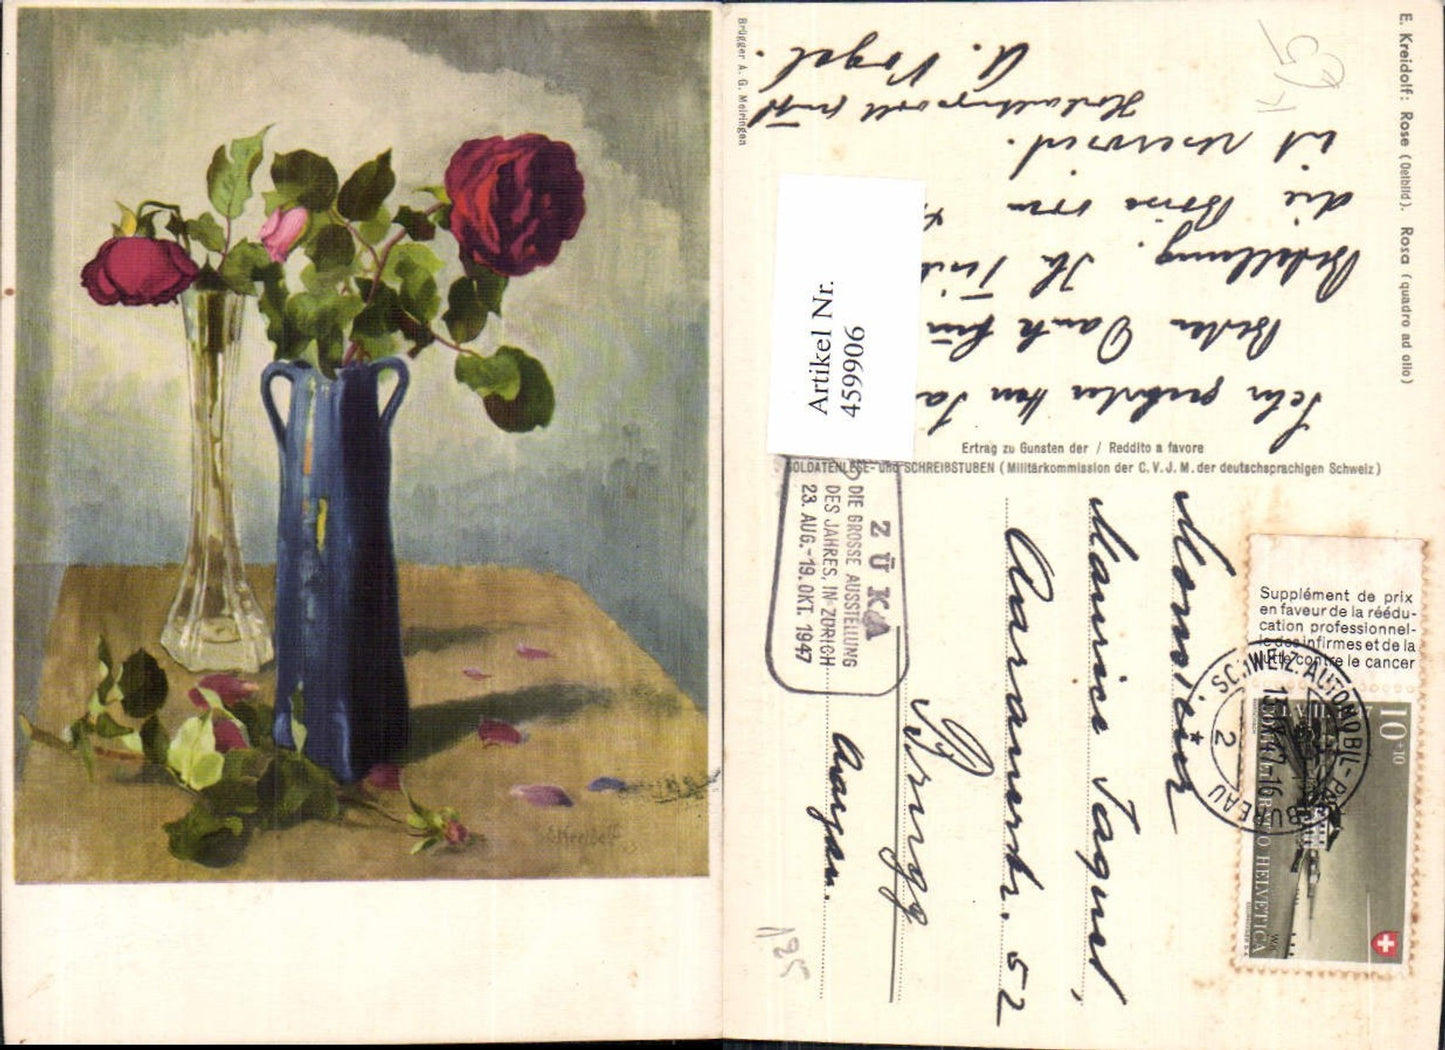 E. Kreidolf: Rose (Oelbild). Rosa (quadro ad olio)
Brügger A. G. Meiringen
Ertrag zu Gunsten der / Reddito a favore
SOLDATENLESE- und SCHREIBSTUBEN (Militärkommission der C. V. J. M. der deutschsprachigen Schweiz)
Sehr geehrter Herr Ja
Besten Dank für
Bestellung. Ihr
die
ist reserviert.
Hochachtungsvoll grüsst
A. Vogel.
Artikel Nr.
459906
ZÜKA
DIE GROSSE AUSSTELLUNG
DES JAHRES, IN ZÜRICH
23. AUG.-19. OKT. 1947
Monsieur
Maurice Jaquet,
Aaraustr. 52
Brugg
Aargau.
Supplément de prix
en faveur de la réédu-
cation professionnel-
le des infirmes et de la
lutte contre le cancer
SCHWEIZ. AUTOMOBIL-POSTBUREAU
2
10+10
HELVETICA